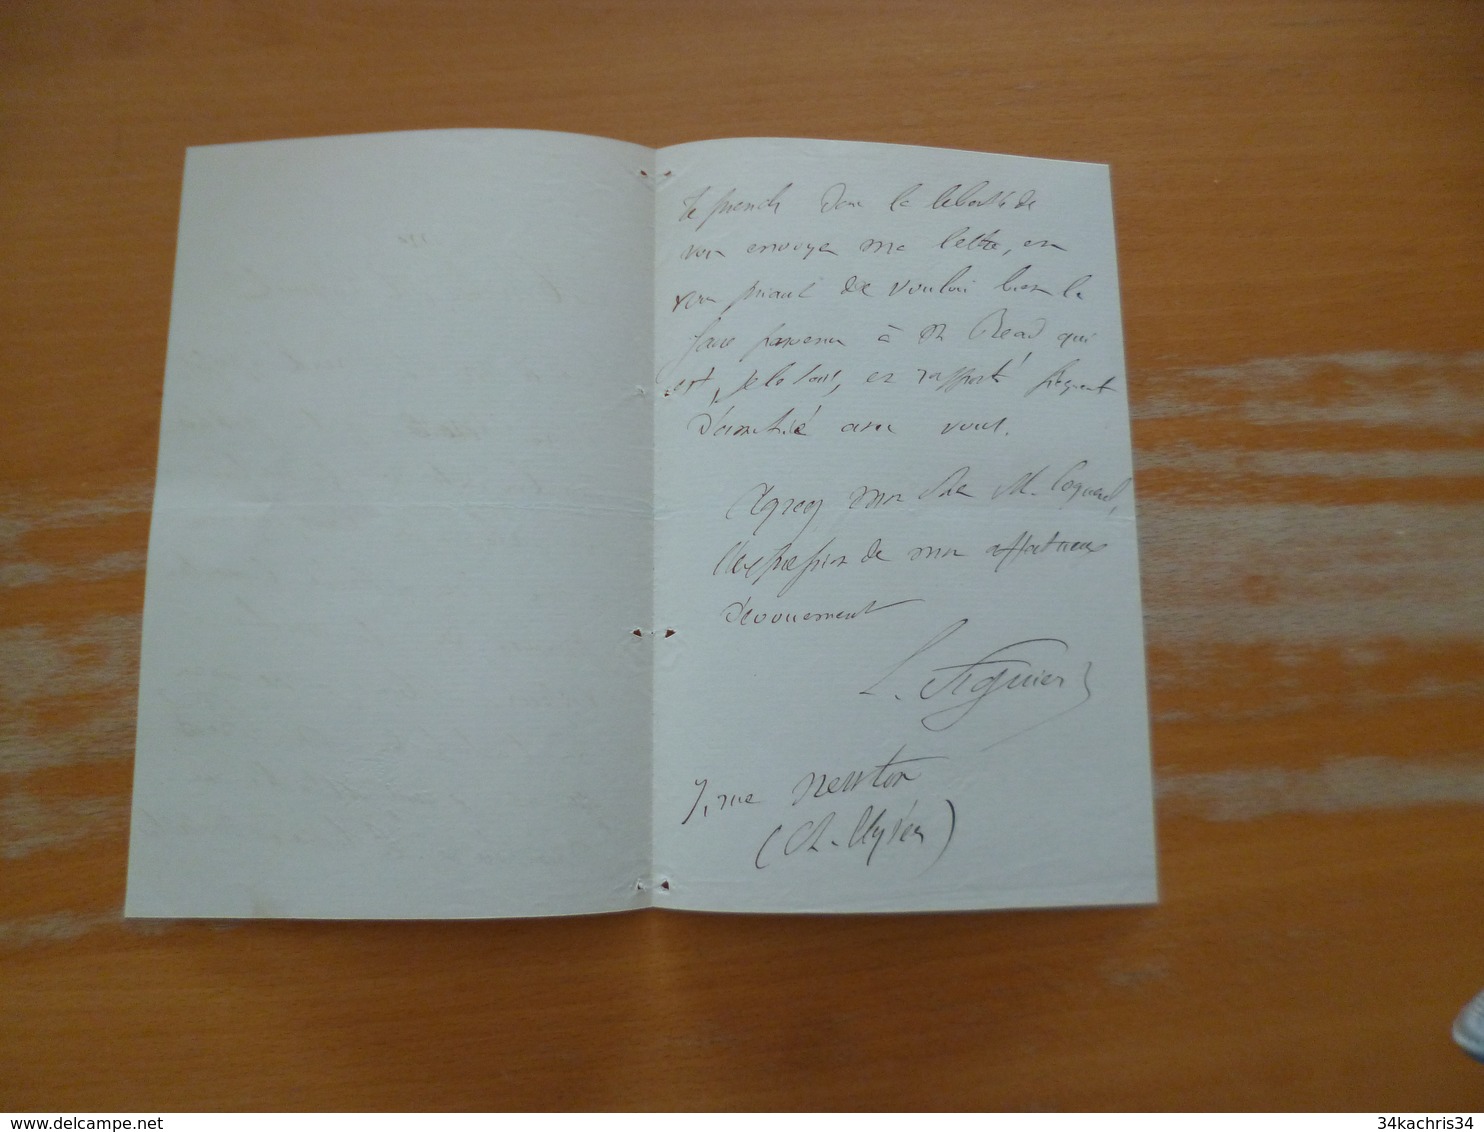 Je prends donc la liberté de
vous envoyer ma lettre, en
vous priant de vouloir bien la
faire parvenir à M Read qui
est, je le sais, en rapports fréquents
d'amitié avec vous.
Agréez mon cher M. Coquerel,
l'expression de mon affectueux
dévouement
L. Figuier
7, rue Newton
(Ch. Elysées)
delcampe.net
34kachris34